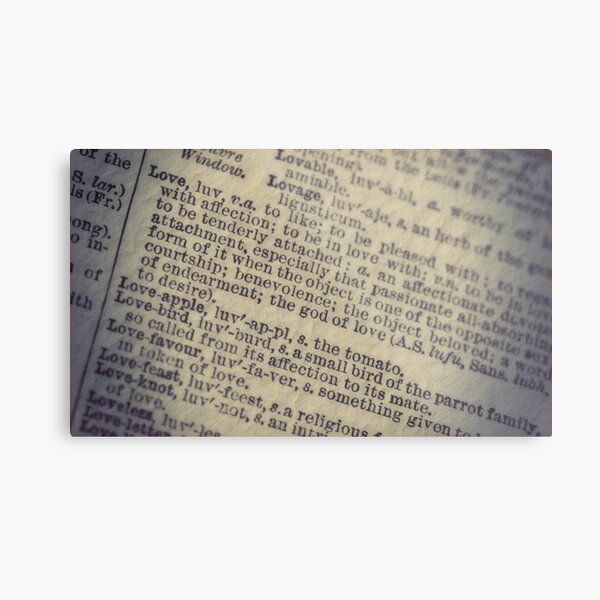 of the
S. lar.)
ls (Fr.)
ong).
o in-
n of
ith
avre
Window.
Love, luv, v.a. to like; to be pleased with; to rega
with affection; to be in love with; v.n. to be in lov
to be tenderly attached: a. an affectionate devote
attachment, especially that passionate all-absorbin
form of it when the object is one of the opposite sex
courtship; benevolence; the object beloved; a word
of endearment; the god of love (A.S. lufu, Sans. lubh,
to desire).
Love-apple, luv'-ap-pl, s. the tomato.
Love-bird, luv'-burd, s. a small bird of the parrot family,
so called from its affection to its mate.
Love-favour, luv'-fa-ver, s. something given to b
in token of love.
Love-feast, luv'-feest, s. a religious f
Love-knot, luv'-not, s. an intri
of love.
Loveless, luv'-les
Love-letter
opening).
from the
Lovable, luv'-à-bl, a. worthy of l
amiable.
Lovage, luv'-aje, s. an herb of the gen
lignsticum.